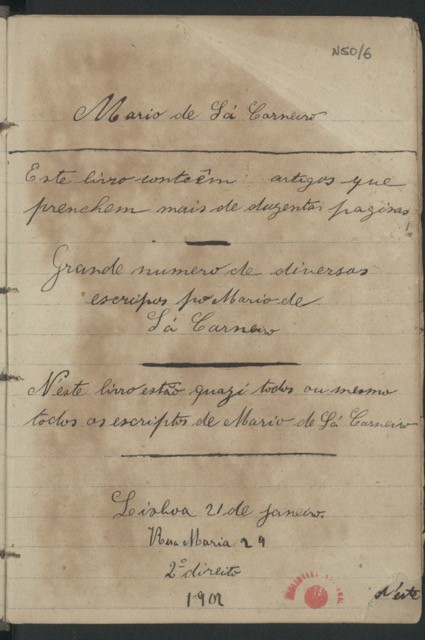 N50/6
Mario de Sá Carneiro
Este livro conteêm artigos que
prenchem mais de duzentas paginas!
Grande numero de diversos
escriptos por Mario de
Sá Carneiro
N'este livro estão quazi todos ou mesmo
todos os escriptos de Mario de Sá Carneiro
Lisboa 21 de janeiro.
Rua Maria 29
2º direito
1902
N'este